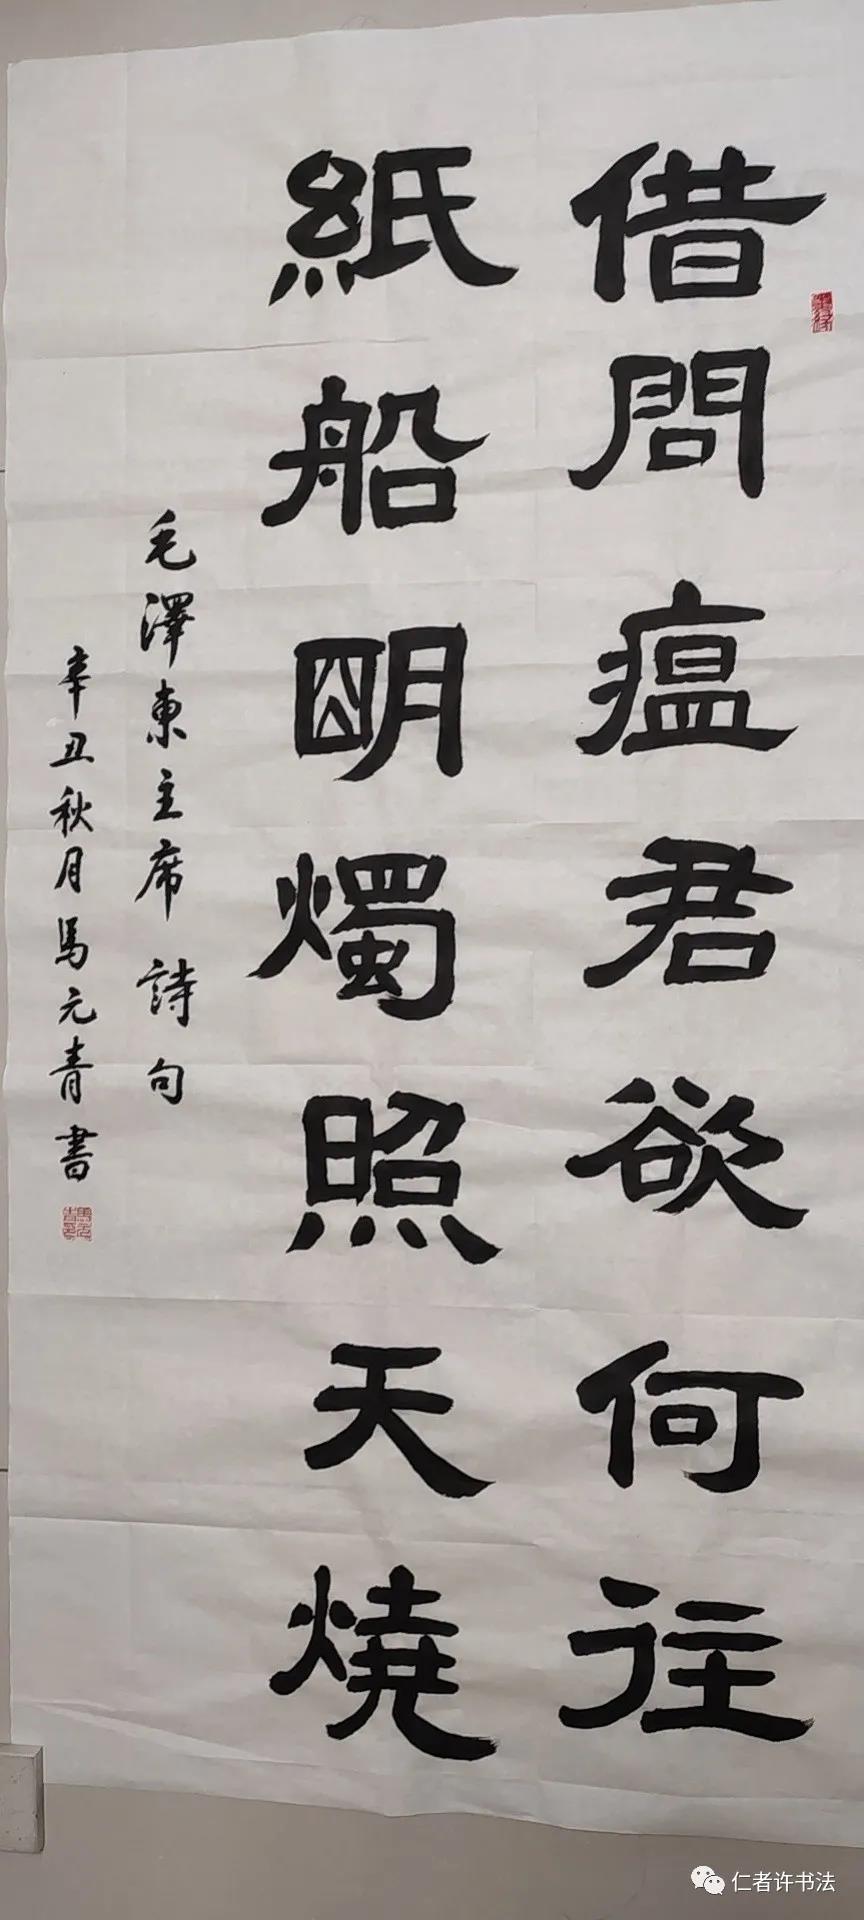 借問瘟君欲何往
紙船明燭照天燒
毛澤東主席詩句
辛丑秋月馬元青書
仁者许书法